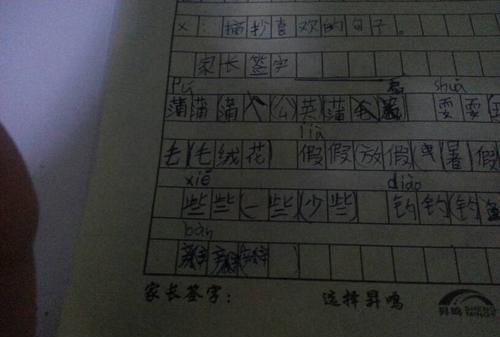 ×:摘抄喜欢的句子。
家长签字
pú shuǎ
蒲蒲蒲公英蒲 耍耍
jià
毛(毛绒花 假假(放假 暑假
xiē diào
些些(一些(少些) 钓钓(钓
bàn
家长签字: 选择昇鸣 昇鸣 SHENG MING